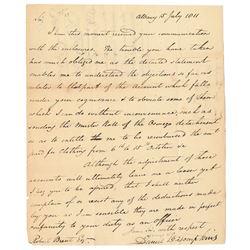 Sir, Albany 15 July 1811
I have this moment received your communication
with the enclosures. The trouble you have taken
has much obliged me as the detailed statement
enables me to understand the objections so far as
relates to that part of the Account which falls
under your cognizance & to obviate some of them
which I can do without inconvenience, such as
sending the Muster Rolls of the Orange Detachment
so as to entitle me to be reimbursed the amt
paid for Clothing from 6th to 15th October
Although the adjustment of these
accounts will ultimately leave me a loser yet
I beg you to be assured, that I shall neither
complain of or resist any of the deductions made
by you as I am sensible they are made in perfect
conformity to your duty as an officer
I am, with respect
Robert Brent Esq Daniel D Tompkins